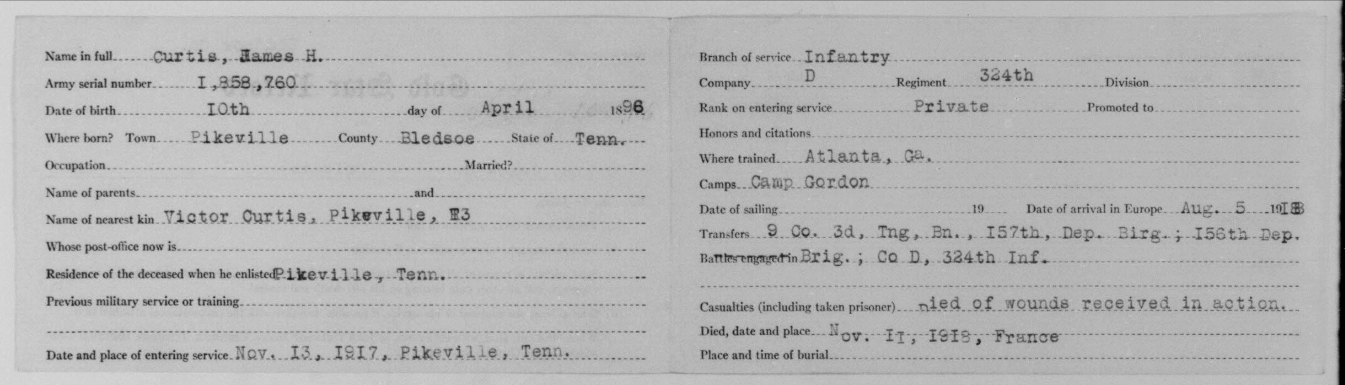 Name in full Curtis, James H.
Army serial number I,858,760
Date of birth IOth day of April 1896
Where born? Town Pikeville County Bledsoe State of Tenn.
Occupation Married?
Name of parents and
Name of nearest kin Victor Curtis, Pikeville, T3
Whose post-office now is
Residence of the deceased when he enlisted Pikeville, Tenn.
Previous military service or training
Date and place of entering service Nov. I3, I9I7, Pikeville, Tenn.
Branch of service Infantry
Company D Regiment 324th Division
Rank on entering service Private Promoted to
Honors and citations
Where trained Atlanta, Ga.
Camps Camp Gordon
Date of sailing 19 Date of arrival in Europe Aug. 5 19I8
Transfers 9 Co. 3d, Tng, Bn., I57th, Dep. Birg.; I56th Dep.
Battles engaged in Brig.; Co D, 324th Inf.
Casualties (including taken prisoner) Died of wounds received in action.
Died, date and place Nov. II, I9I8, France
Place and time of burial